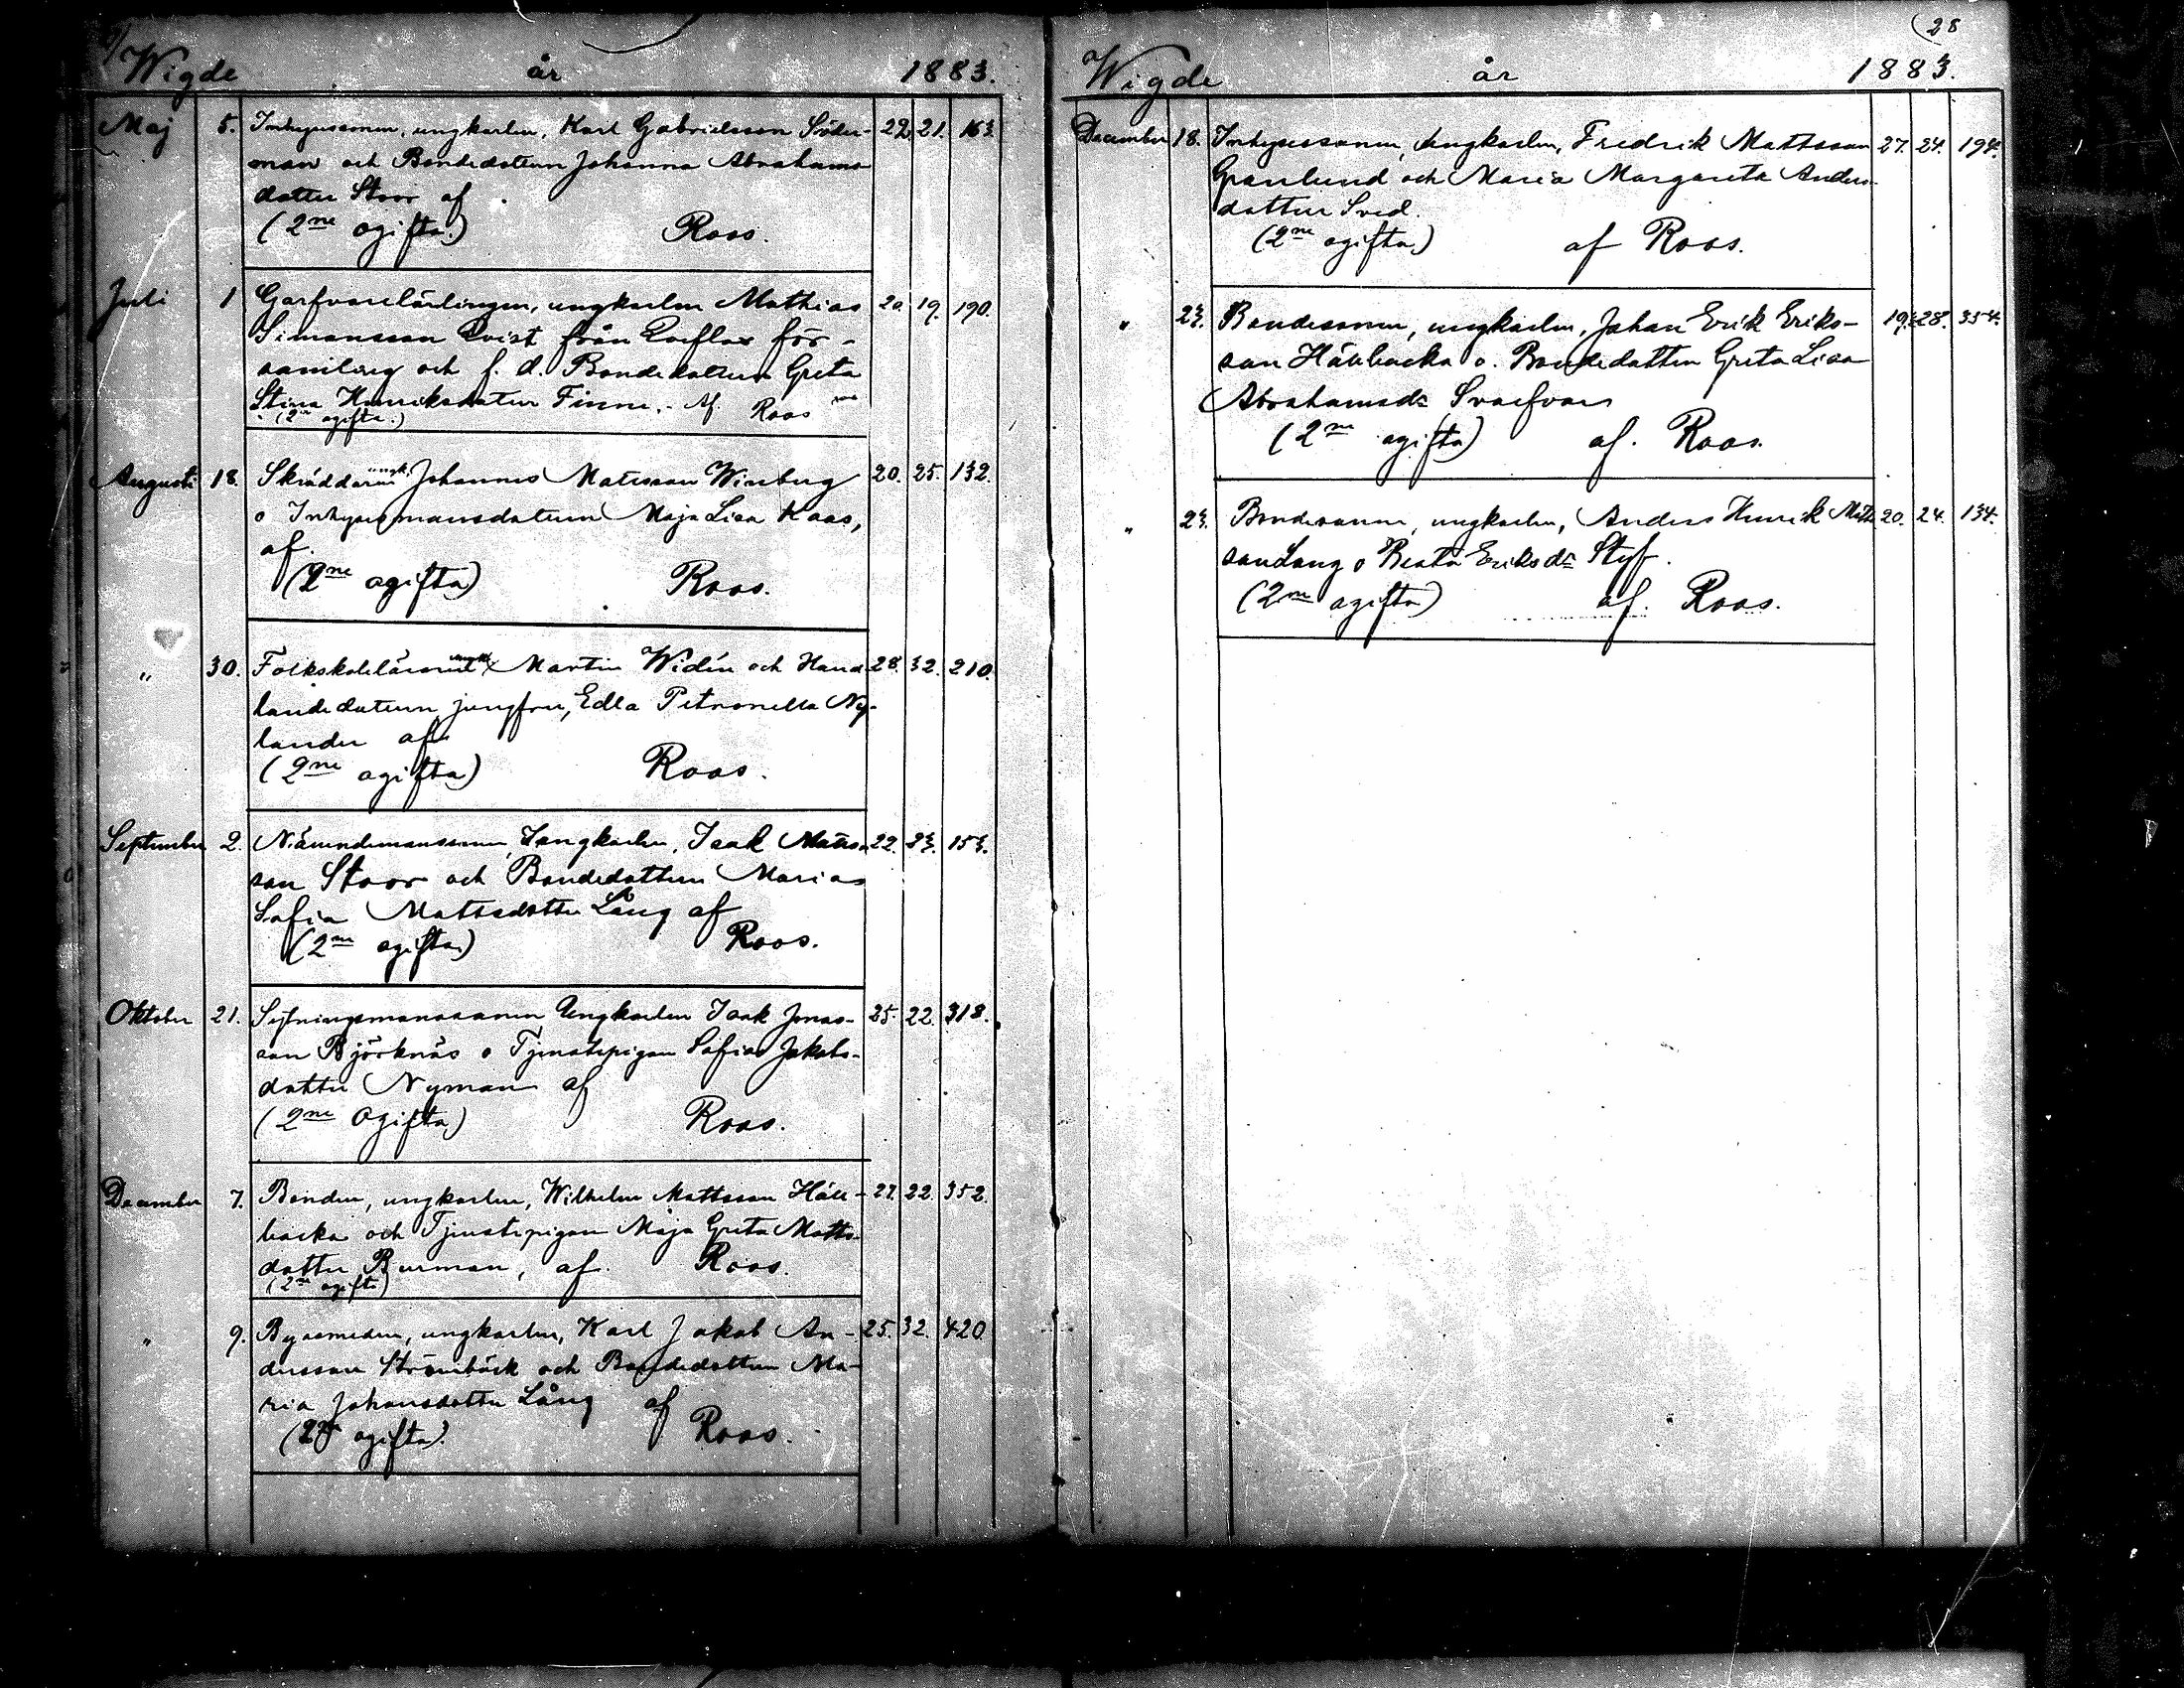 Wigde år 1883.
Maj 5. Inhysesonen, ungkarlen, Karl Gabrielsson Söder- 22. 21. 163.
man och Bondedottren Johanna Abrahams
dotter Stoor af
(2ne ogifta.) Roos.
Juli 1 Garfvarelärlingen, ungkarlen Mathias 20. 19. 190.
Simonsson Qvist från för-
samling och f. d. Bondedottren Greta
Stina Henriksdotter Finne. Af Roos
(2ne ogifta.)
Augusti 18. Skräddaren ungk. Johannes Matsson Winberg 20. 25. 132.
o Inhysesmansdottren Maja Lisa Kaas,
af.
(2ne ogifta) Roos.
" 30. Folkskoleläraren Martin Widén och Hand 28. 32. 210.
landedottren jungfru, Edla Petronella Ny-
lander af
(2ne ogifta) Roos.
September 2. Nämndemanssonen, Ungkarlen, Isak Matts 22. 23. 153.
son Stoor och Bondedottren Maria
Sofia Mattsdotter Lång af
(2ne ogifta) Roos.
Oktober 21. Sytningsmanssonen Ungkarlen Isak Jonas- 25. 22. 318.
son Björknäs o Tjenstepigan Sofia Jakobs-
dotter Nyman af
(2ne Ogifta) Roos.
December 7. Bonden, ungkarlen, Wilhelm Mattsson Häll- 27. 22. 352.
backa och Tjenstepigan Maja Greta Matts-
dotter Burman, af. Roos.
(2ne ogifta)
" 9. Bysmeden, ungkarlen, Karl Jakob An- 25. 32. 420.
dersson Strömbäck och Bondedottren Ma-
ria Johansdotter Lång af
(2ne ogifta) Roos.
28
Wigde år 1883.
December 18. Inhysessonen, Ungkarlen, Fredrik Mattsson 27. 24. 194.
Granlund och Maria Margareta Anders-
dotter Sved.
(2ne ogifta) af Roos.
" 23. Bondesonen, ungkarlen, Johan Erik Eriks- 19. 28. 354.
son Hällbacka o. Bondedottren Greta Lisa
Abrahamsdr Svarfvar
(2ne ogifta) af. Roos.
" 23. Bondesonen, ungkarlen, Anders Henrik Matts 20. 24. 134.
son Lang o Beata Eriksdr Styf.
(2ne ogifta) af. Roos.